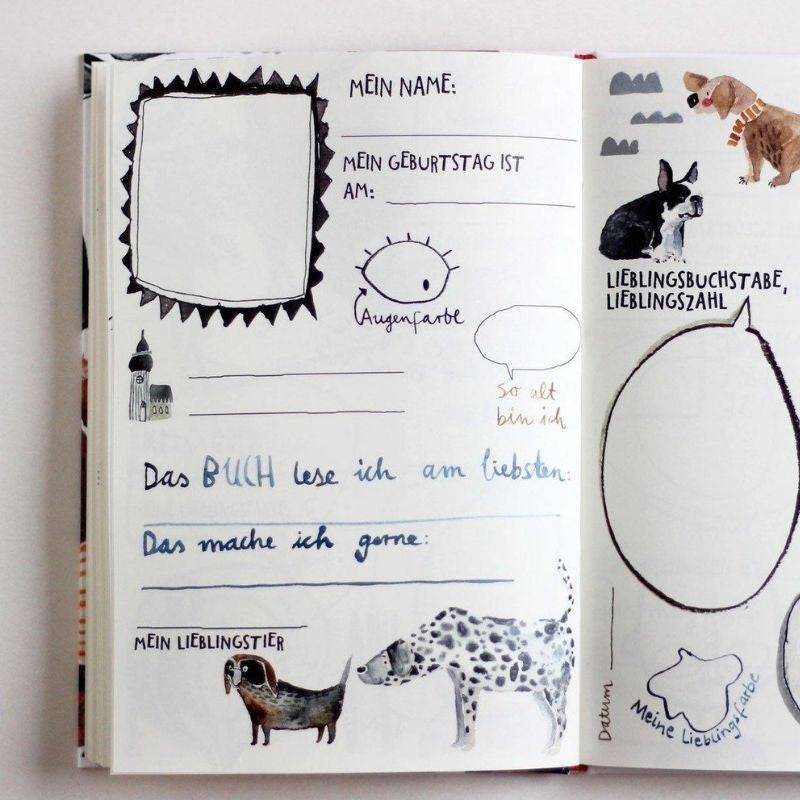 MEIN NAME:
MEIN GEBURTSTAG IST
AM:
Augenfarbe
so alt
bin ich
Das BUCH lese ich am liebsten:
Das mache ich gerne:
MEIN LIEBLINGSTIER
LIEBLINGSBUCHSTABE,
LIEBLINGSZAHL
Datum
Meine Lieblingsfarbe